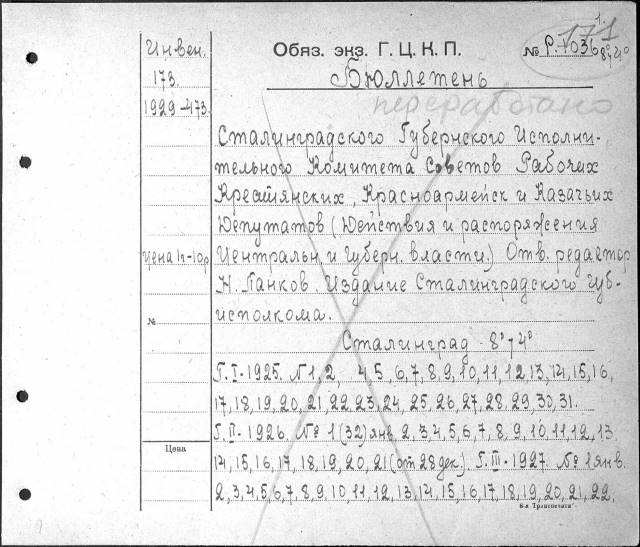 1.
171
Инвен.
173.
1929-473.
Обяз. экз. Г. Ц. К. П.
№ Р. 1036 8°4°
Бюллетень
переработано
Сталинградского Губернского Исполни-
тельного Комитета Советов Рабочих
Крестьянских, Красноармейск и Казачьих
Депутатов (Действия и распоряжения
Цена 1г-10р
Центральн. и Губерн. власти.) Отв. редактор
Н. Панков. Издание Сталинградского Губ-
исполкома.
№
Сталинград 8° 4°
Г. I. 1925. N 1, 2, 4 5, 6, 7, 8, 9, 10, 11, 12, 13, 14, 15, 16,
17, 18, 19, 20, 21 22, 23, 24, 25, 26, 27, 28, 29, 30, 31.
Г. II. 1926. № 1 (32) янв. 2, 3, 4, 5, 6, 7, 8, 9, 10, 11, 12, 13
Цена
14, 15, 16, 17, 18, 19, 20, 21 (от 28 дек). Г. III. 1927. № 1 янв.
2, 3, 4, 5, 6, 7, 8, 9. 10, 11, 12, 13, 14, 15, 16, 17, 18, 19, 20, 21, 22,
8-я „Транспечати“